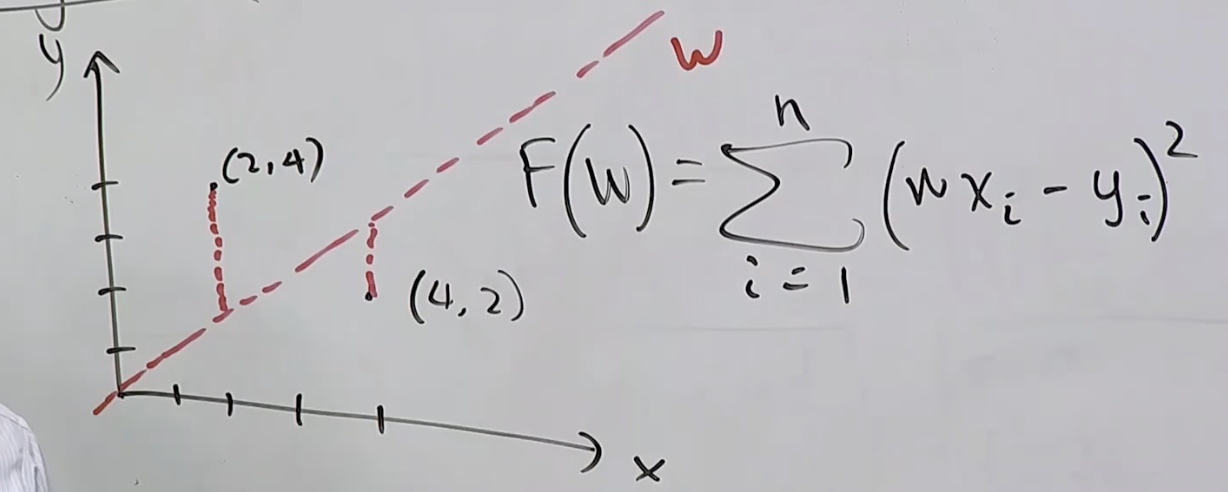 y
W
(2,4)
(4,2)
x
F(W) = \sum_{i=1}^{n} (w x_i - y_i)^2